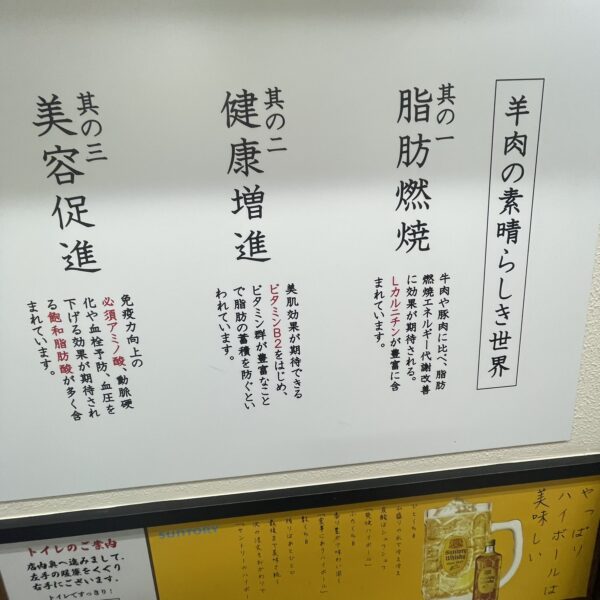 羊肉の素晴らしき世界
其の一
脂肪燃焼
牛肉や豚肉に比べ、脂肪
燃焼エネルギー代謝改善
に効果が期待される。
Lカルニチンが豊富に含
まれています。
其の二
健康増進
美肌効果が期待できる
ビタミンB2をはじめ、
ビタミン群が豊富なこと
で脂肪の蓄積を防ぐとい
われています。
其の三
美容促進
免疫力向上の
必須アミノ酸、動脈硬
化や血栓予防、血圧を
下げる効果が期待され
る飽和脂肪酸が多く含
まれています。
やっぱり
ハイボールは
美味しい
SUNTORY
Suntory
Whisky
トイレのご案内
店内奥へ進みまして、
左手の暖簾をくぐり
右手にございます。
トイレですっきり!